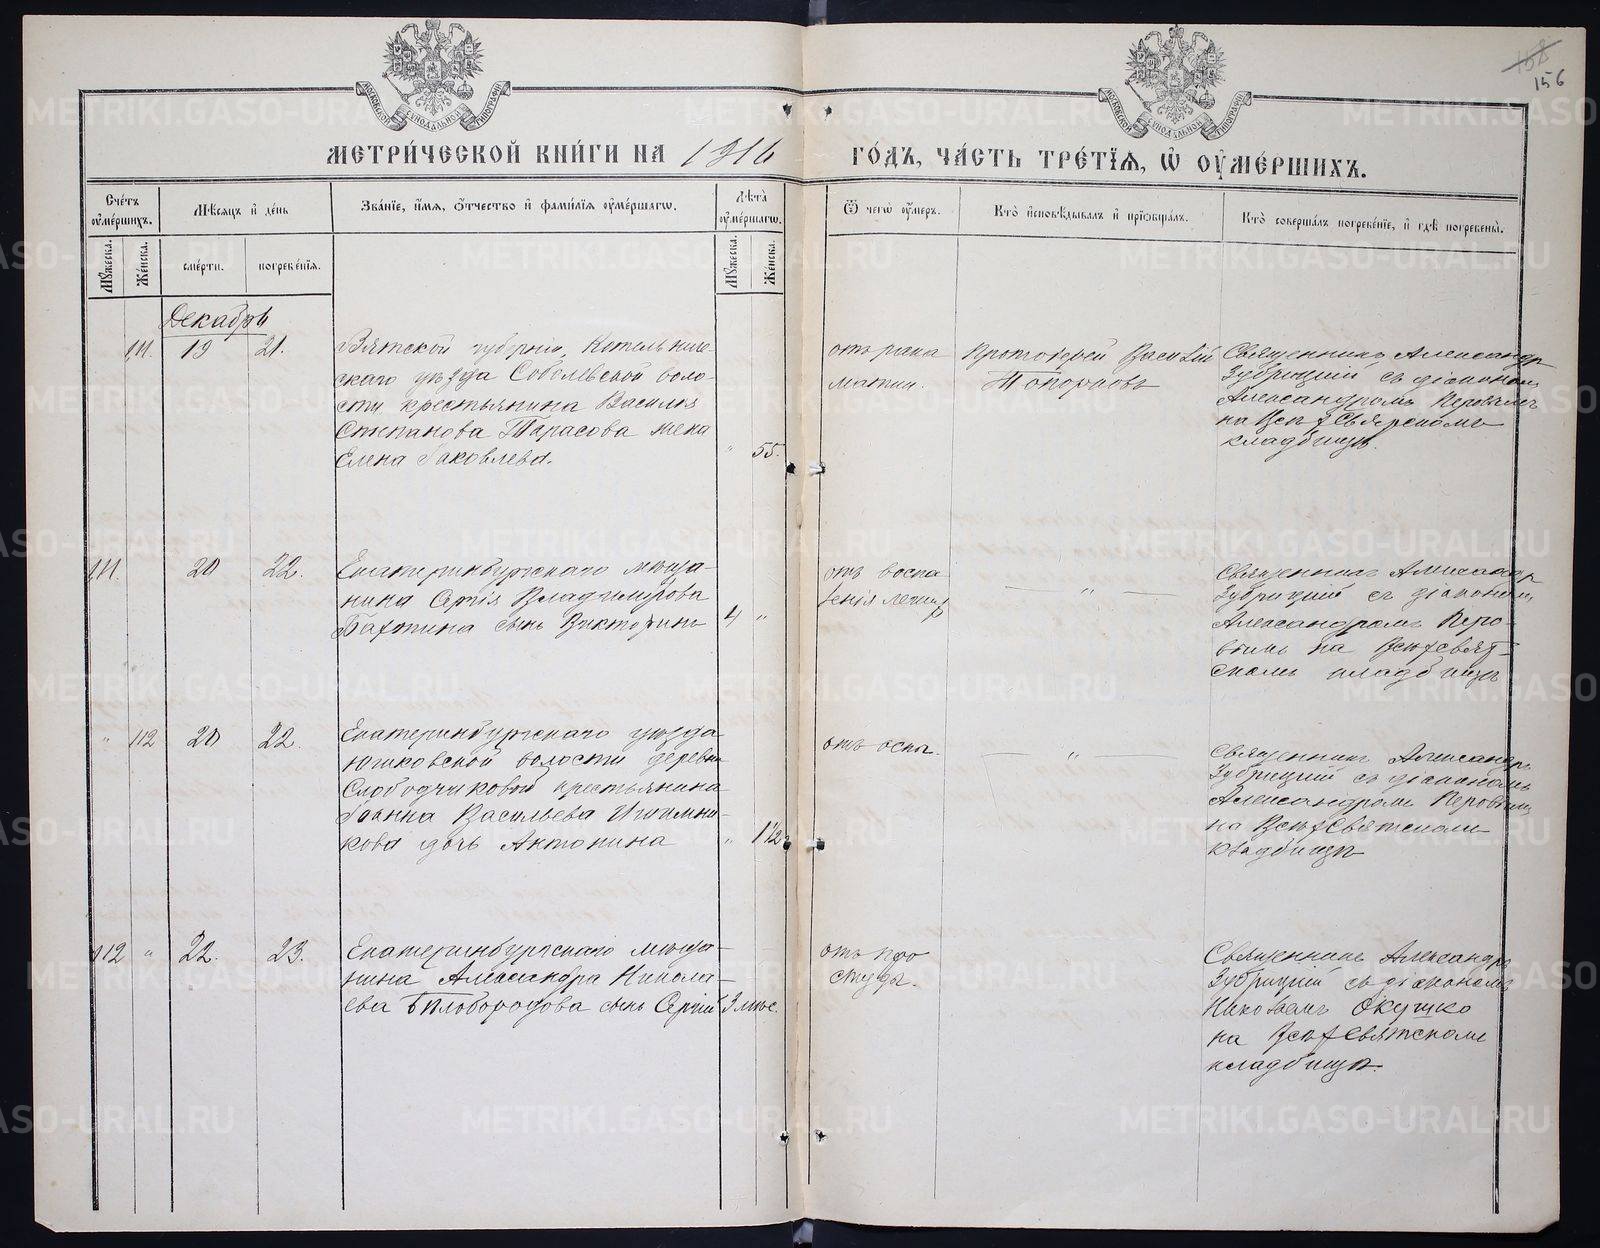 156
МОСКОВСКОЙ СѴНОДАЛЬНОЙ ТИПОГРАФІИ
МОСКОВСКОЙ СѴНОДАЛЬНОЙ ТИПОГРАФІИ
МЕТРИ́ЧЕСКОЙ КНИ́ГИ НА 1916 ГО́ДЪ, ЧА́СТЬ ТРЕ́ТЇѦ, Ѡ҆ ОУ҆МЕ́РШИХЪ.
Сче́тъ оу҆ме́ршихъ.
Мѣ́сяцъ и҆ де́нь
Зва́нїе, и҆́мѧ, ѻ҆́тчество и҆ фами́лїѧ оу҆ме́ршагѡ.
Лѣ́та оу҆ме́ршагѡ.
Ѿ чегѡ̀ оу҆́меръ.
Кто̀ и҆сповѣ́дывалъ и҆ прїѡбща́лъ.
Кто̀ соверша́лъ погребе́нїе, и҆ гдѣ̀ погребены̀.
Мꙋ́жеска.
Же́нска.
сме́рти.
погребе́нїѧ.
Мꙋ́жеска.
Же́нска.
Декабрь
111. 19 21.
Вятской губерніи, Котельниче-
скаго уѣзда Соболевской воло-
сти крестьянина Василія
Стѣпанова Тарасова жена
Елена Іаковлева.
" 55.
отъ рака
матки.
Протоіерей Василій
Топорковъ
Священникъ Александръ
Зубрицкій съ діакономъ
Александромъ Перовымъ
на Всѣхсвятскомъ
кладбищѣ.
111. 20 22.
Екатеринбургскаго мѣща-
нина Сергія Владимірова
Бахтина сынъ Викторинъ
4 "
отъ воспа
ленія легких
— " —
Священникъ Александръ
Зубрицкій съ діакономъ
Александромъ Перо-
вымъ на Всѣхсвят-
скомъ кладбищѣ
" 112 20 22.
Екатеринбургскаго уѣзда
Юшковской волости деревни
Слободчиковой крестьянина
Іоанна Васильева
кова дочь Антонина
" 1 1/2
отъ оспы.
— " —
Священникъ Александръ
Зубрицкій съ діакономъ
Александромъ Перовымъ
на Всѣхсвятскомъ
кладбищѣ
112 " 22. 23.
Екатеринбургскаго мѣща-
нина Александра Никола-
ева Бѣлобородова сынъ Сергій
3 мѣс.
отъ про
студы.
Священникъ Александръ
Зубрицкій съ діакономъ
Николаемъ Окушко
на Всѣхсвятскомъ
кладбищѣ.